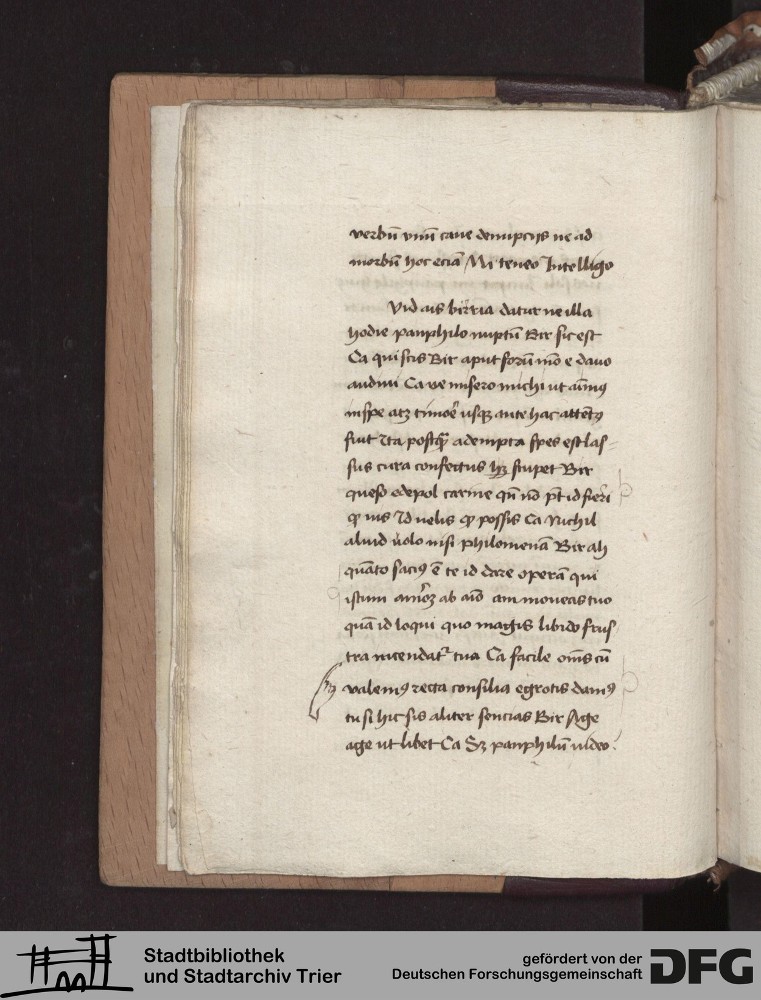 verbū vnū caue denupcijs ne ad
morbū hoc eciā Mi teneo Intelligo
Vid ais birria datur ne illa
hodie panphilo nuptū Bir sic est
Ca qui scis Bir aput forū mō e dauo
audiui Ca ve misero michi ut aīmꝯ
inspe atꝫ timoē usqꝫ ante hac attētꝯ
fuit Ita postqᷓ adempta spes est las
sus cura confectus stupet Bir
queso edepol carine qn̄ nō pt̄ id fieri
qd vis Id uelis qd possis Ca Nichil
aliud uolo nisi philomenā Bir ah
quāto saciꝯ ē te id dare operā qui
istum amōꝫ ab aīo am moueas tuo
quā id loqui quo magis libido frus
tra incendat᷑ tua Ca facile om̄s cū
valemꝯ recta consilia egrotis damꝯ
tu si hic sis aliter sencias Bir Age
age ut libet Ca Sꝫ panphilū uideo
Stadtbibliothek
und Stadtarchiv Trier
gefördert von der
Deutschen Forschungsgemeinschaft
DFG